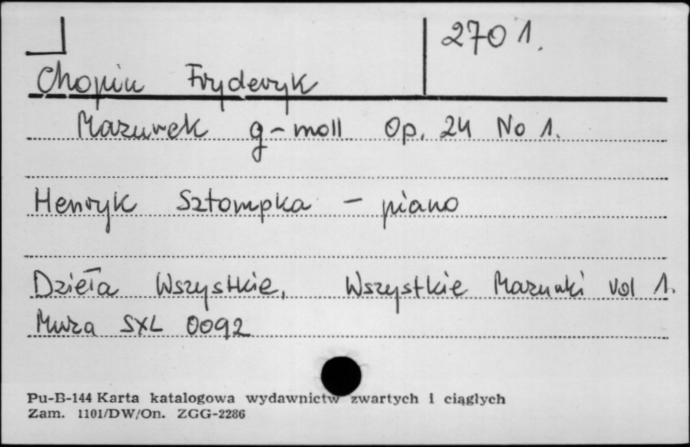 2701.
Chopin Fryderyk
Mazurek g-moll Op. 24 No 1.
Henryk Sztompka - piano
Dzieła Wszystkie, Wszystkie Mazurki vol 1.
Muza SXL 0092
Pu-B-144 Karta katalogowa wydawnictw zwartych i ciągłych
Zam. 1101/DW/On. ZGG-2286